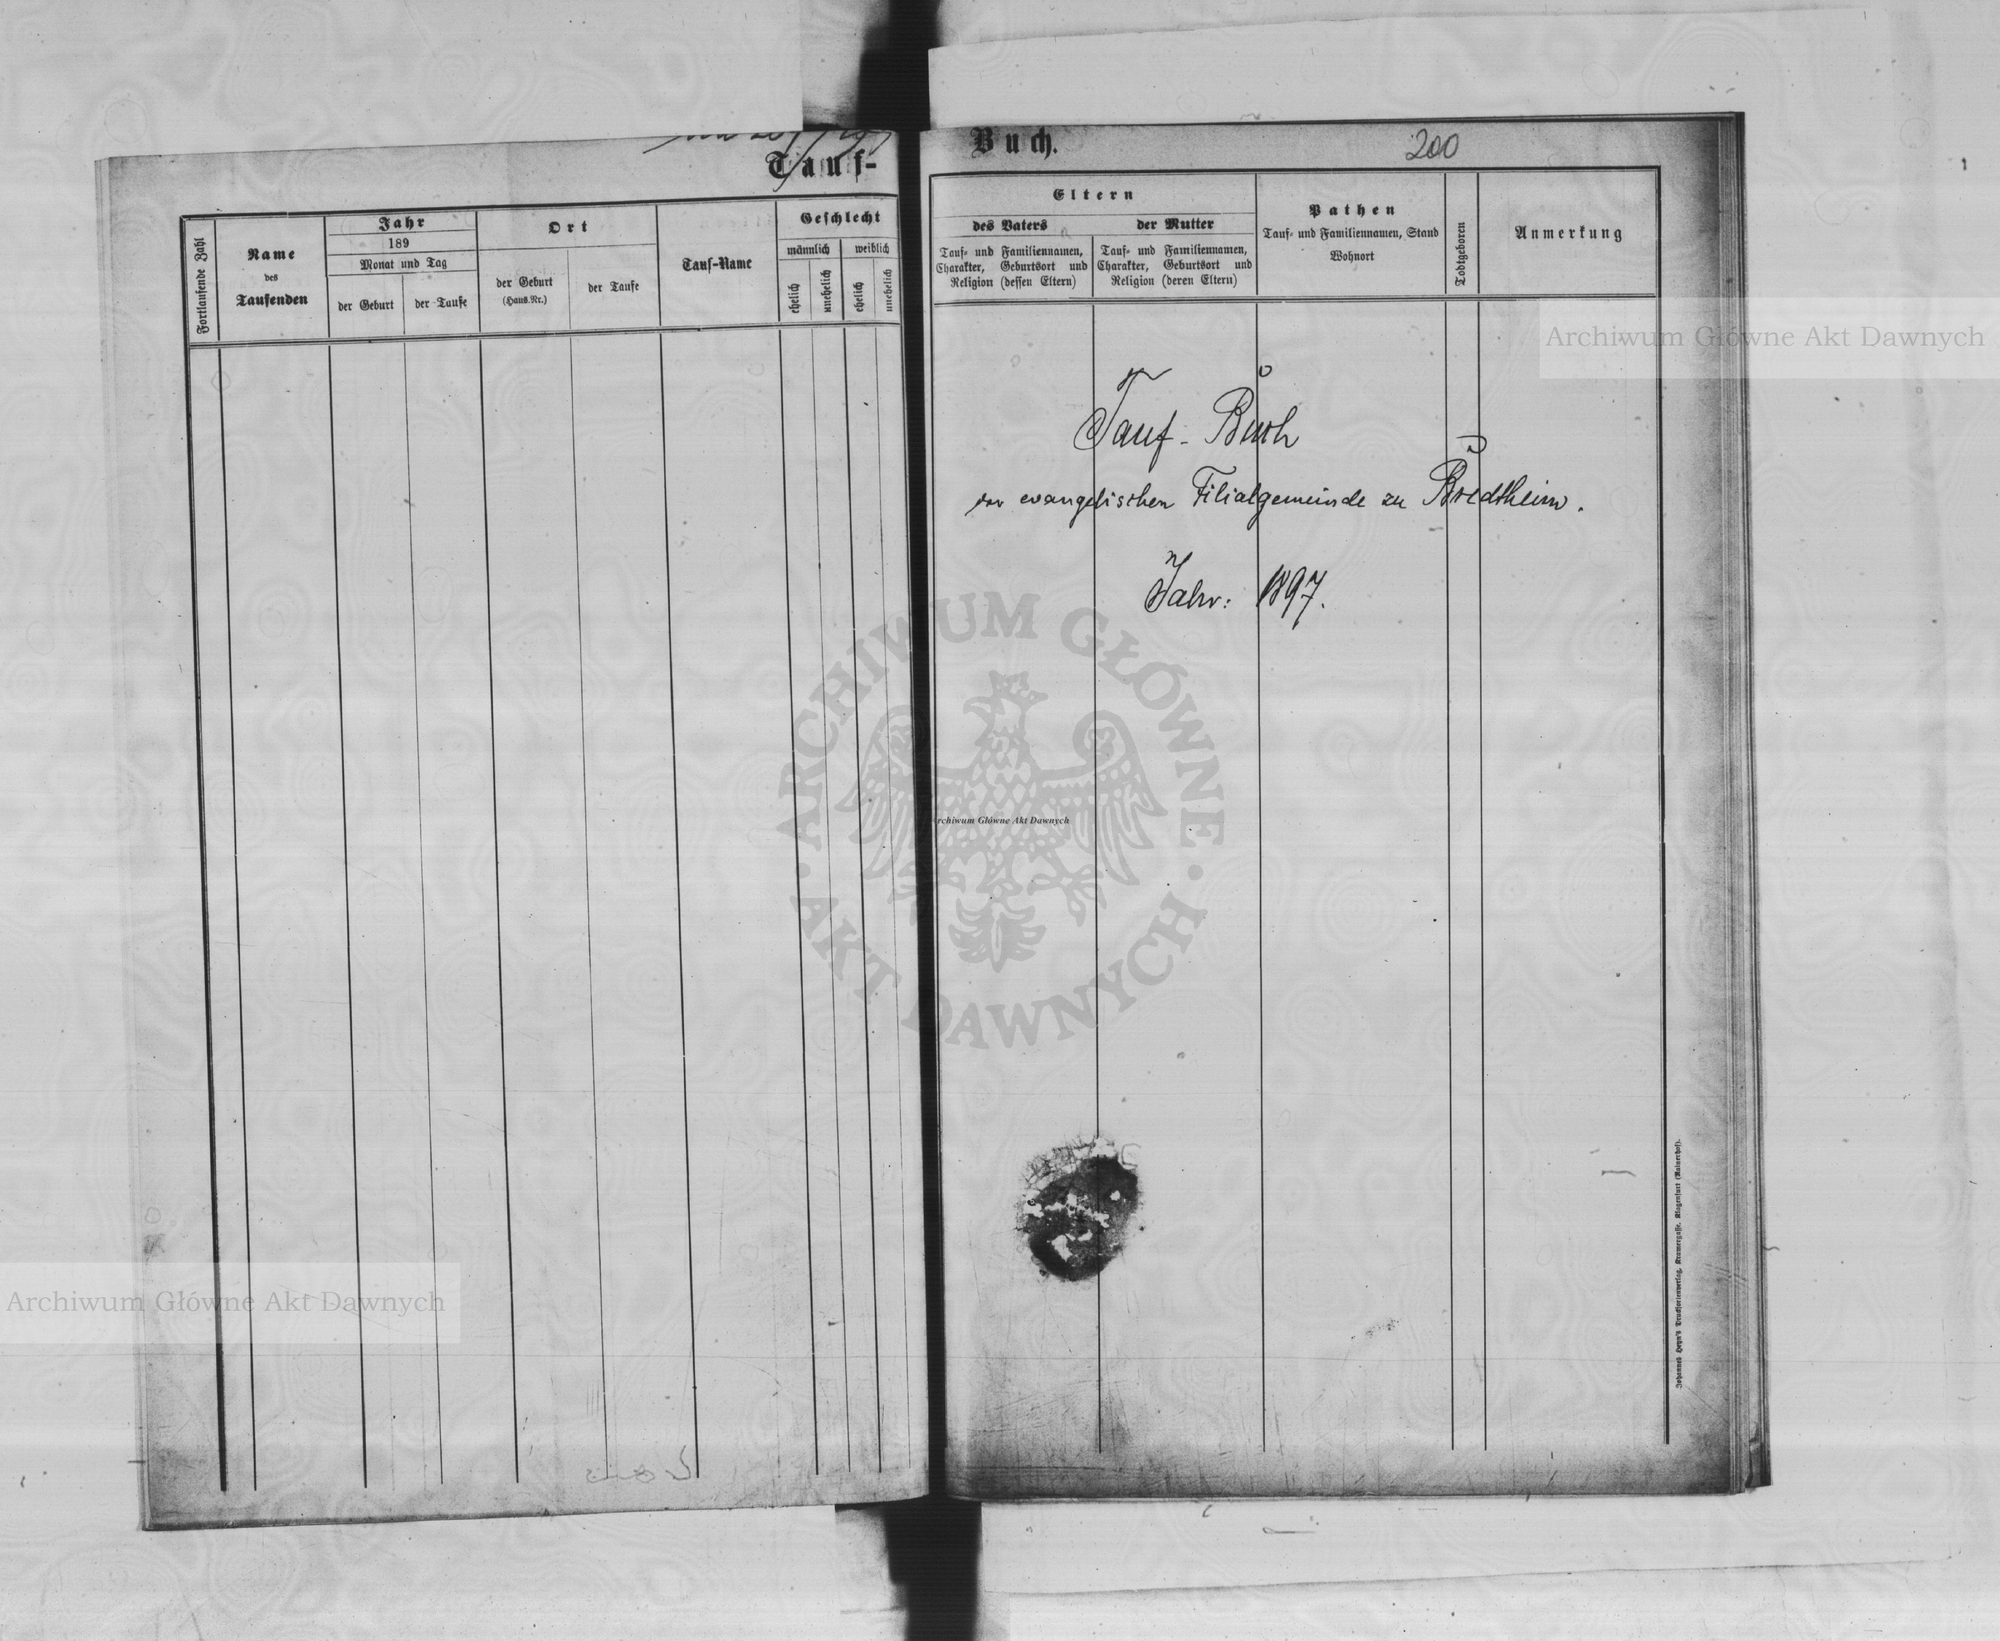 Tauf-
Fortlaufende Zahl
Name
des
Taufenden
Jahr
189
Monat und Tag
der Geburt
der Taufe
Ort
der Geburt
(Haus-Nr.)
der Taufe
Tauf-Name
Geschlecht
männlich
weiblich
ehelich
unehelich
ehelich
unehelich
Buch.
200
Eltern
des Vaters
Tauf- und Familiennamen,
Charakter, Geburtsort und
Religion (dessen Eltern)
der Mutter
Tauf- und Familiennamen,
Charakter, Geburtsort und
Religion (deren Eltern)
Pathen
Tauf- und Familiennamen, Stand
Wohnort
Todtgeboren
Anmerkung
Tauf-Buch
der evangelischen Filialgemeinde zu Bredtheim.
Jahr: 1897.
Johannes Heyn's Drucksortenverlag, Kramergasse, Klagenfurt (Rainerhof).
Archiwum Główne Akt Dawnych
ARCHIWUM GŁÓWNE
AKT DAWNYCH
Archiwum Główne Akt Dawnych
Archiwum Główne Akt Dawnych